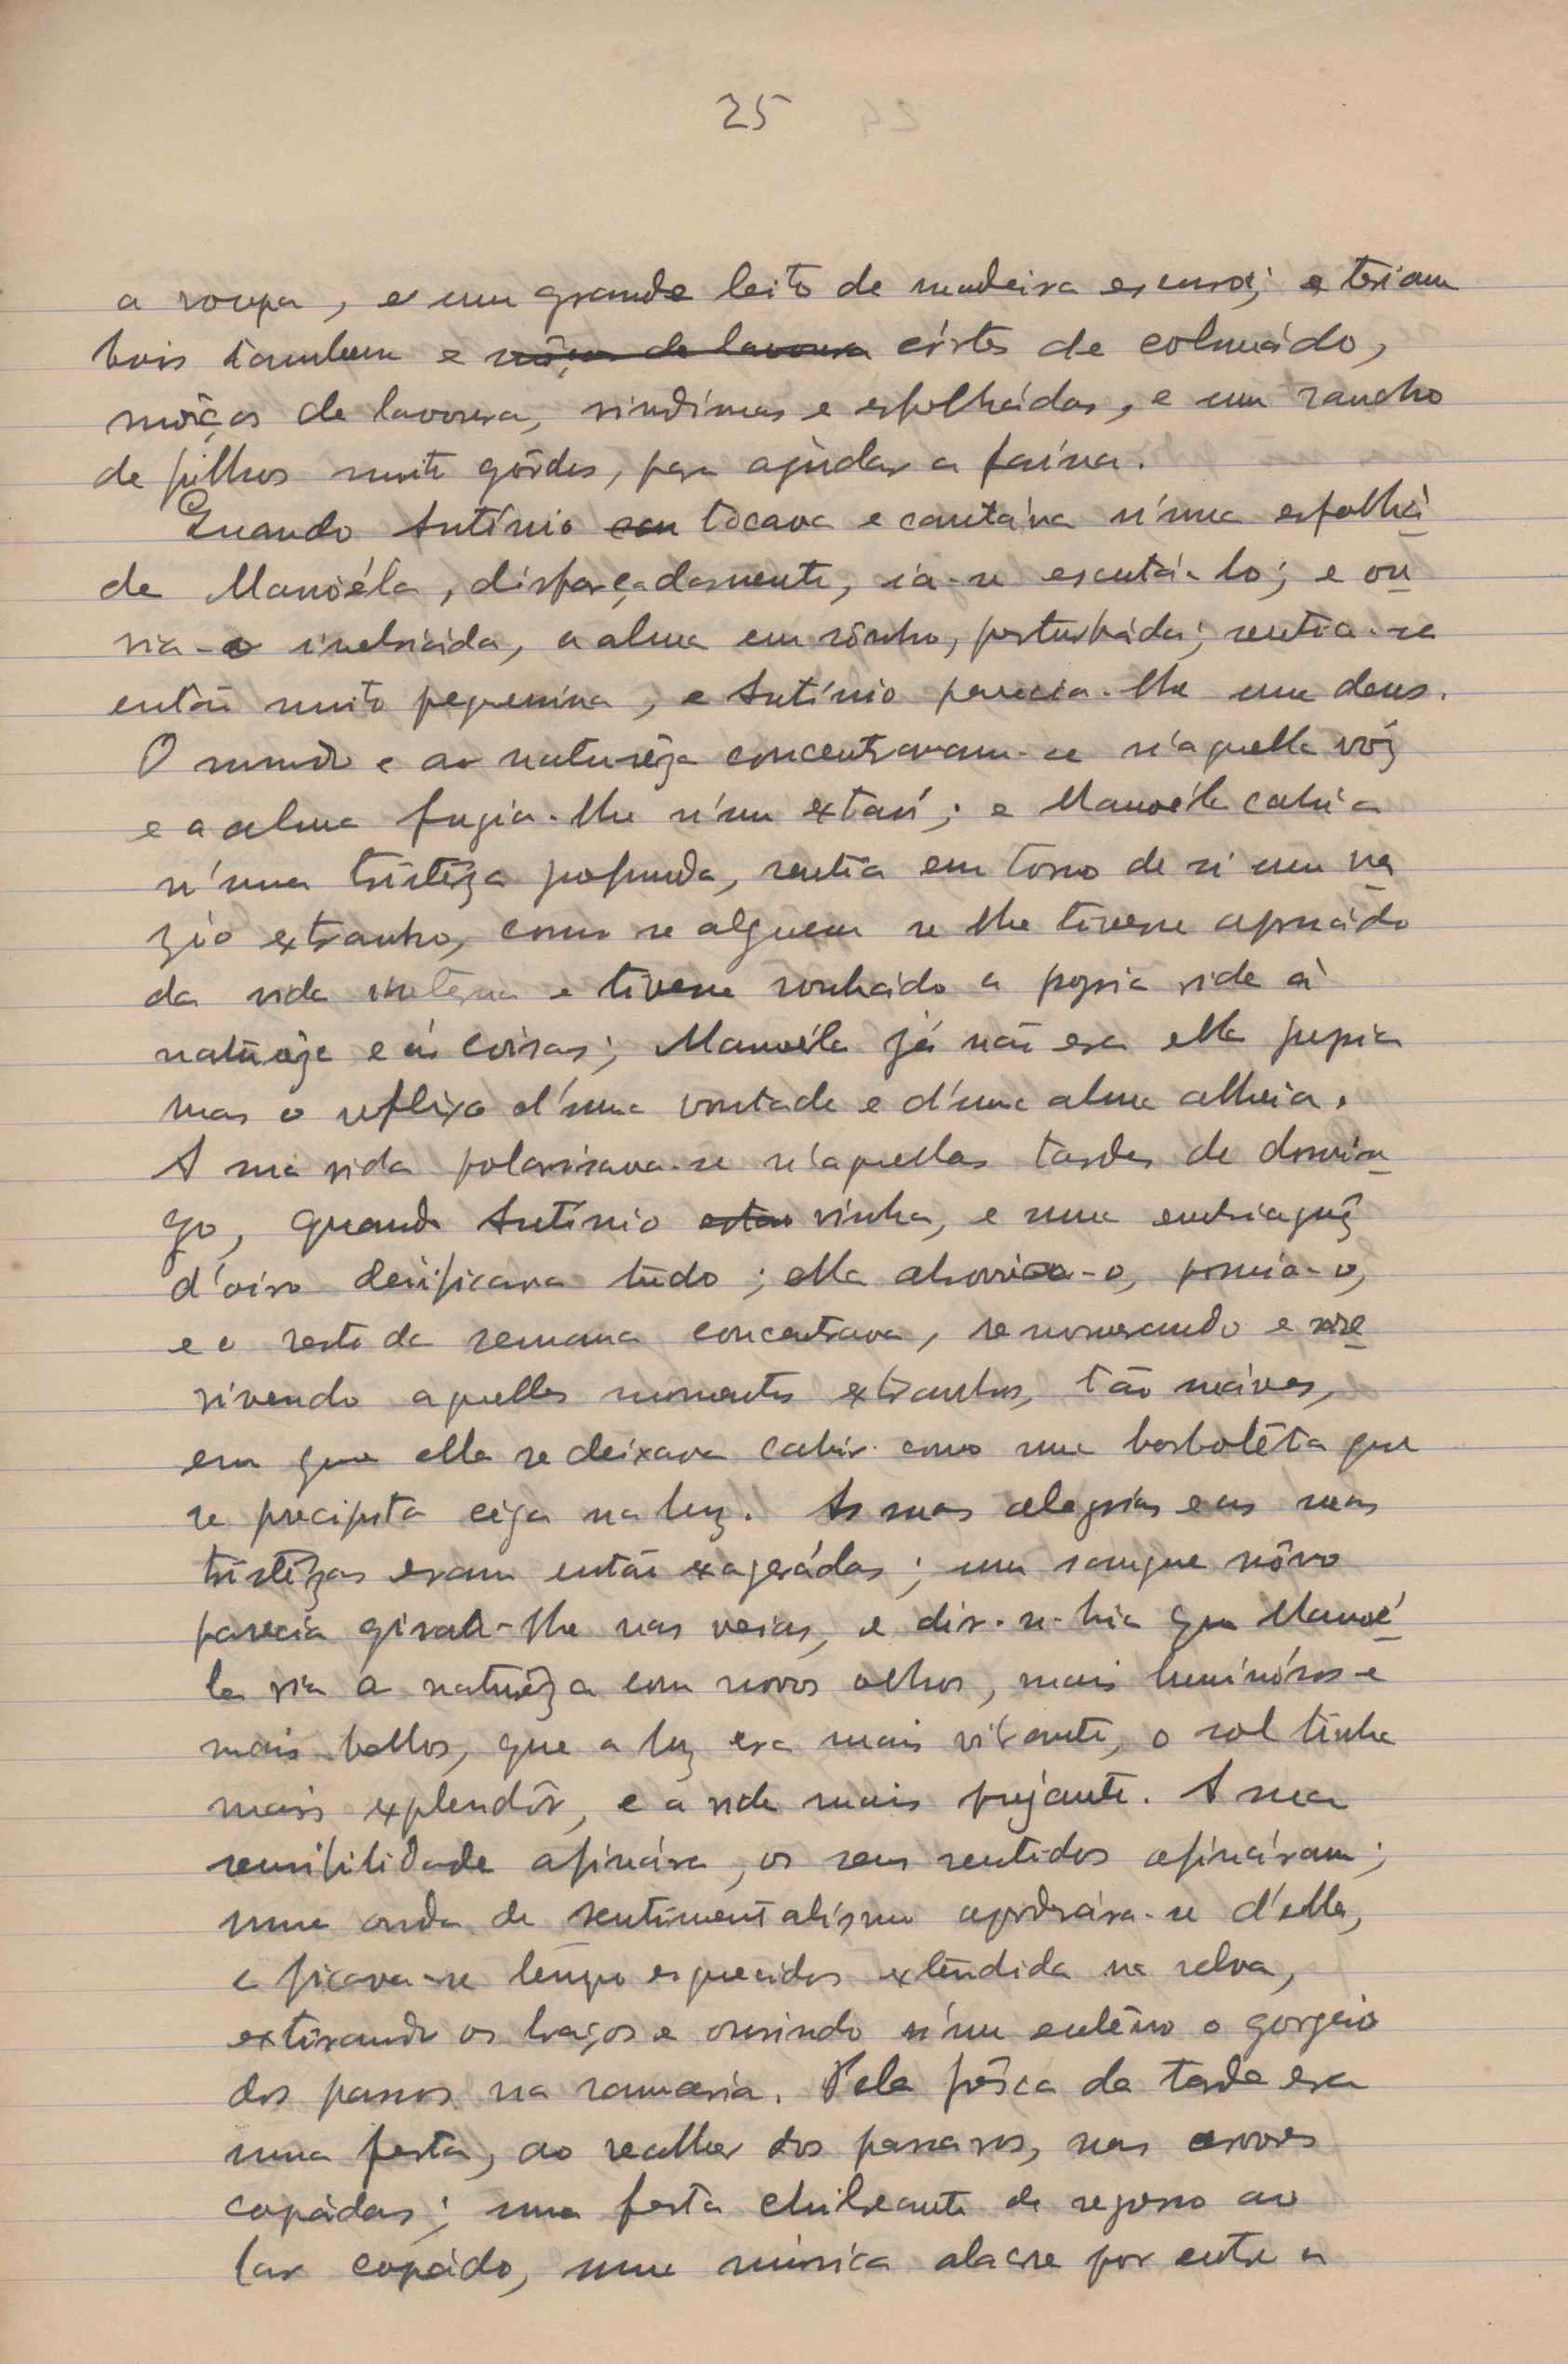 25
a roupa, e um grande leito de madeira escura; e teriam
bois tambem e môços de lavoura córtes de colmádo,
môços de lavoura, vindimas e esfolhádas, e um rancho
de filhos muito górdos, para ajudar a faina.
Quando António tocava e cantáva n'uma esfolhá
da Manoéla, disfarçadamente, ia-se escutá-lo; e ou
via-o inebriáda, a alma em sônho, perturbáda; sentia-se
então muito pequenina, e António parecia-lhe um deus.
O mundo e a naturêza concentravam-se n'aquella vóz
e a alma fugia-lhe n'um extasi; e Manoéla cahia
n'uma tristêza profunda, sentia em torno de si um va
zio extranho, como se alguem se lhe tivesse apossádo
da vida interna e tivesse roubádo a propria vida á
naturêza e ás coisas; Manoéla já não era ella propria
mas o reflexo d'uma vontade e d'uma alma alheia.
A sua vida polarisava-se n'aquellas tardes de domin
go, quando António vinha, e uma embriaguêz
d'oiro deificava tudo; ella absorvia-o, possuia-o,
e o resto da semana concentrava, rememorando e re
vivendo aquelles momentos extranhos, tão suáves,
em que ella se deixava cahir como uma borbolêta que
se precipita céga na luz. As suas alegrias e as suas
tristêzas eram então exagerádas; um sangue nôvo
parecia girar-lhe nas veias, e dir-se-hia que Manoé
la via a naturêza com novos olhos, mais luminósos e
mais bellos, que a luz era mais vibrante, o sol tinha
mais explendôr, e a vida mais pujante. A sua
sensibilidade afinára, os seus sentidos afináram;
uma onda de sentimentalismo apoderára-se d'ella,
e ficava-se tempos esquecidos extendida na relva,
extirando os braços e ouvindo n'um enlêvo o gorgeio
dos passaros na ramaria. Pela frêsca da tarde era
uma festa, ao recolher dos passaros, nas arvores
copádas; uma festa chilreante de regresso ao
lar copádo, uma música alacre por entre a